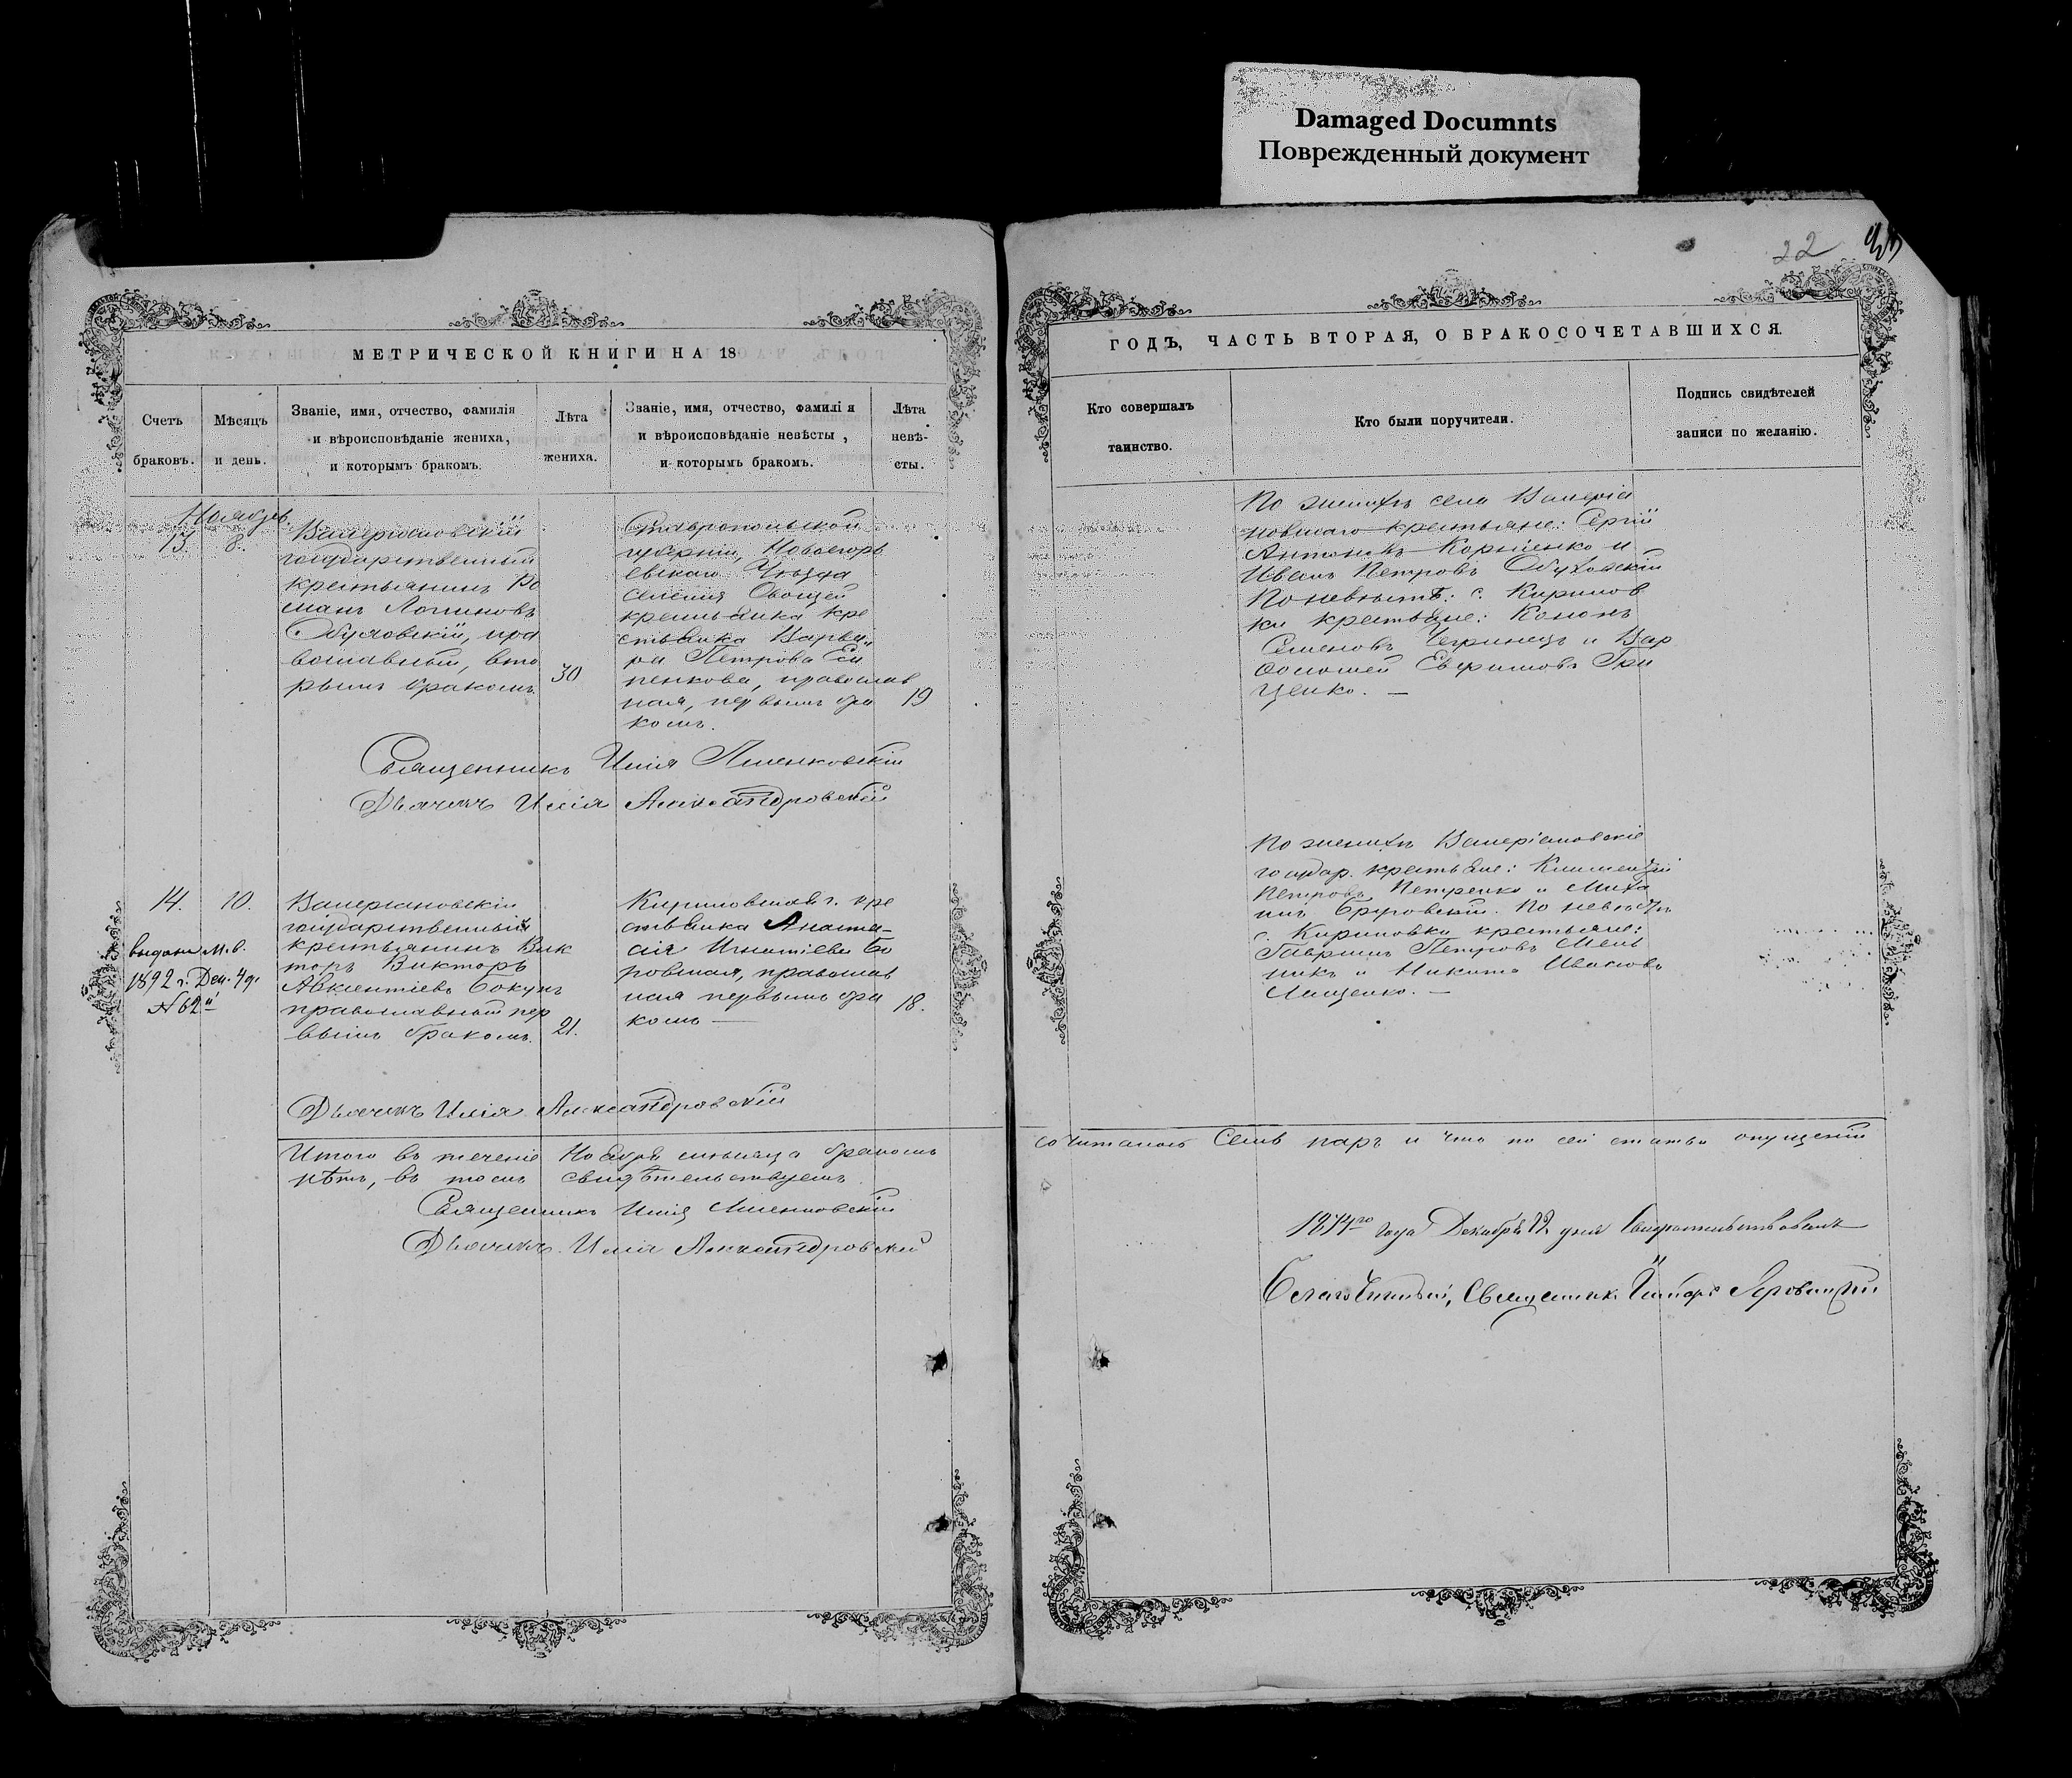 Damaged Documnts
Поврежденный документ
22
МЕТРИЧЕСКОЙ КНИГИ НА 18
Счетъ
браковъ.
Мѣсяцъ
и день.
Званіе, имя, отчество, фамилія
и вѣроисповѣданіе жениха,
и которымъ бракомъ.
Лѣта
жениха.
Званіе, имя, отчество, фамилія
и вѣроисповѣданіе невѣсты,
и которымъ бракомъ.
Лѣта
невѣ-
сты.
Ноября.
13. 8.
Валеріановскій
государственный
крестьянинъ Ро
манъ Логиновъ
Обуховскій, пра
вославный, вто
рымъ бракомъ.
30
Ставропольской
губерніи, Новогеорг
евскаго Уѣзда
Селенія Овощей
крестьянка кре
стьянка Варва
ра Петрова
пенкова, православ
ная, первымъ бра
комъ.
19
Священникъ Илія
Дьячекъ Илія Александровскій
14. 10.
Валеріановскій
государственный
крестьянинъ Вик
торъ Викторъ
Авксентіевъ Бокунъ
православный пер
вымъ бракомъ.
21.
выдана м. в.
1892 г. Дек. 4 д.
№ 62й
Кириловская г. кре
стьянка Анаста-
сія Игнатіева Бо
ровская, православ
ная первымъ бра
комъ —
18.
Дьячекъ Илія Александровскій
Итого въ теченіе Ноября мѣсяца бракомъ
нѣтъ, въ томъ свидѣтельствуемъ.
Священникъ Илія
Дьячекъ Илія Александровскій
ГОДЪ, ЧАСТЬ ВТОРАЯ, О БРАКОСОЧЕТАВШИХСЯ.
Кто совершалъ
таинство.
Кто были поручители.
Подпись свидѣтелей
записи по желанію.
По женихѣ села Валеріа
новскаго крестьяне: Сергій
Антоновъ Корніенко и
Иванъ Петровъ Обуховскій
По невѣстѣ: с. Кирилов
ки крестьяне: Кононъ
Семеновъ Чепринецъ и Вар
ѳоломей Евфимовъ Гри
ценко. —
По женихѣ Валеріановскіе
государ. крестьяне: Климентій
Петровъ Петренко и Миха
илъ. По невѣстѣ
с. Кириловки крестьяне:
Гавріилъ Петровъ Мель
никъ и Никита Ивановъ
Лищенко. —
сочеталось Семь паръ и что по сей статьи опущеній
1874го года Декабря дня Свидѣтельствовалъ
Благочинный, Священникъ